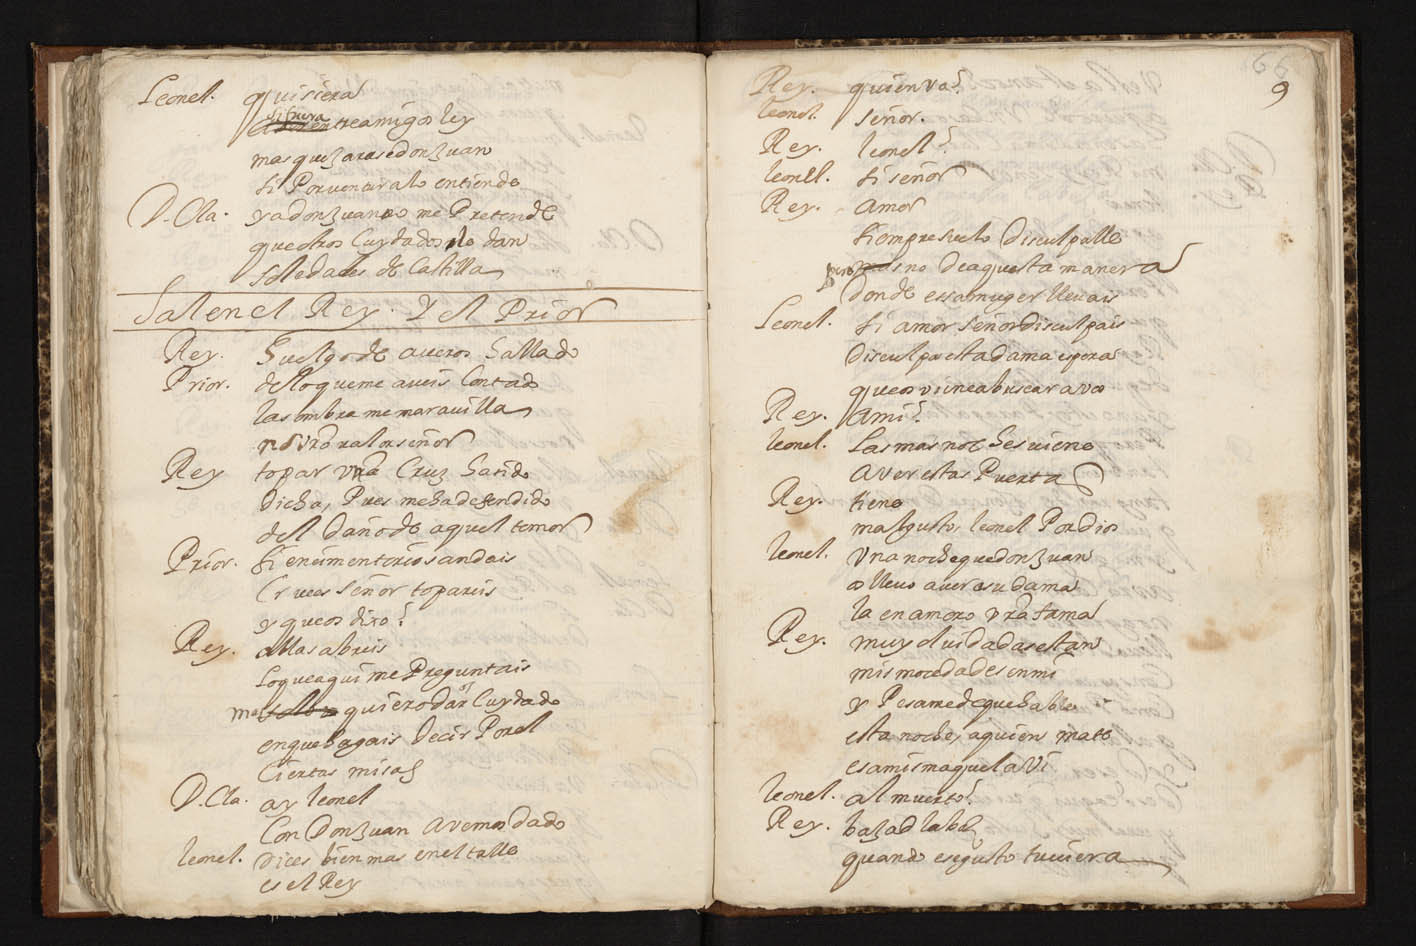 Leonel. quisiera
si fuera
entre amigos ley
mas quejarase don Juan
si Por ventura lo entiende
D. Cla. ya don Juan no me Pretende
que otros Cuydados le dan
soledades de Castilla
Salen el Rey. Y el Prior
Rey. Huelgo de averos hallado
Prior. de lo que me aveis Contado
la sombra me maravilla
Rey topar una Cruz ha sido
dicha, Pues me ha defendido
del daño de aquel temor
Prior. si en cimenterios andais
Cruces señor topareis
y que os dixo?
Rey. allas abreis
lo que aqui me Preguntais
quiero dar Cuydado
en que hagais decir Por el
Ciertas misas
D. Cla. ay leonel
Con Don Juan avemos dado
leonel. dices bien mas en el talle
es el Rey
66
9
Rey. quien va?
leonel. señor.
Rey. leonel?
leonel. si señor
Rey. amor
siempre suelo disculpalle
pero no de aquesta manera
donde essa muger llevais
Leonel. si amor señor disculpais
disculpa esta dama espera
que os viene a buscar a vos
Rey. a mi?
leonel. las mas noches viene
a ver estas Puertas
Rey. tiene
mal gusto, leonel Por dios
leonel. Una noche que don Juan
os llevo a ver a su dama
la enamoro vra fama
Rey. muy olvidadas estan
mis mocedades en mi
y Pesame de que hable
esta noche, a quien mate
esa misma que la vi
leonel. al muerto?
Rey. bajad la boz
quando ese gusto tuviera